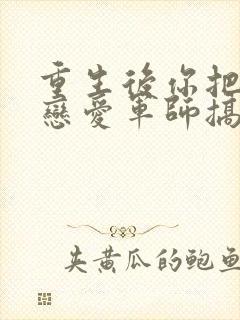 重生後你把
戀愛軍師搞
夾黃瓜的鮑魚